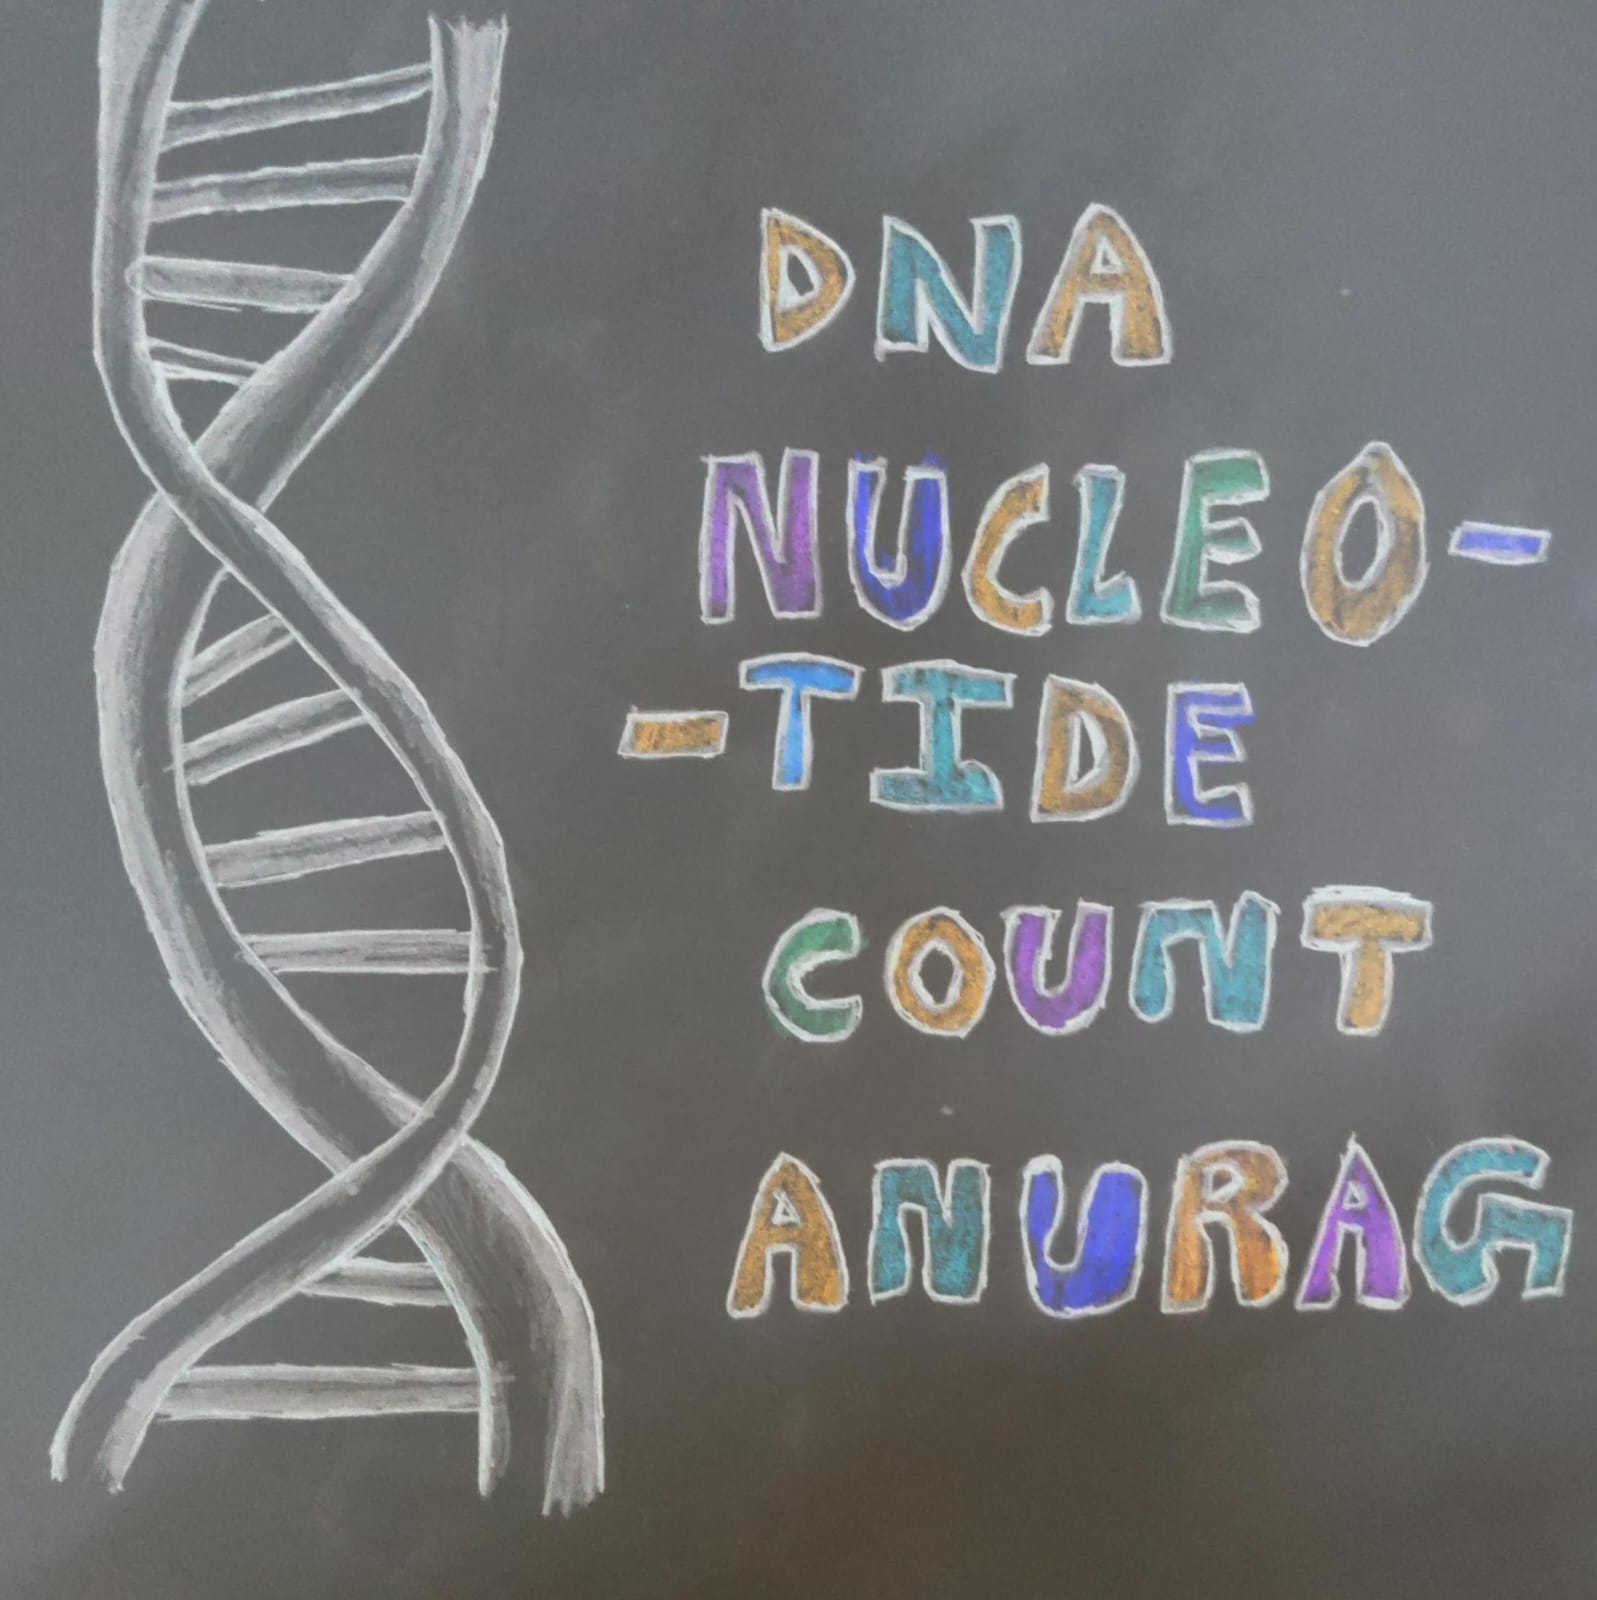 DNA
NUCLEO-
-TIDE
COUNT
ANURAG